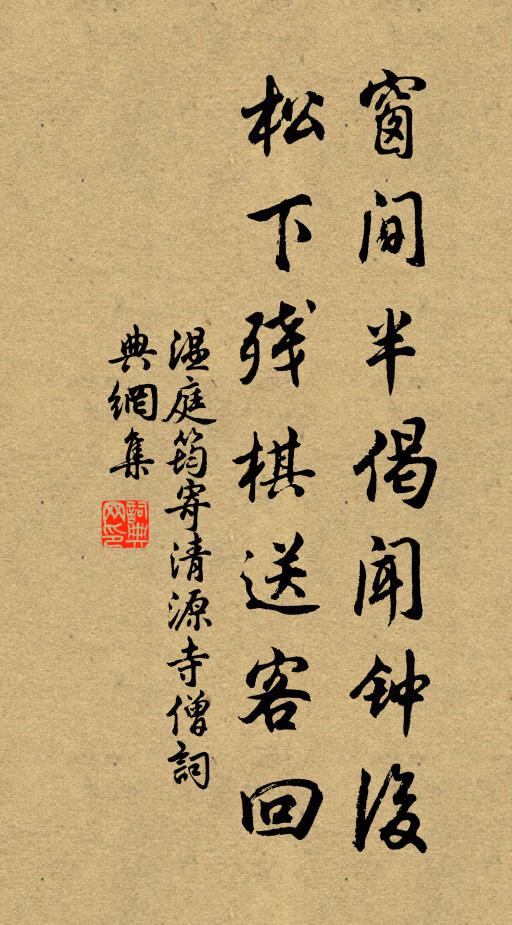 窗间半偈闻钟後
松下残棋送客回
温庭筠寄清源寺僧詞
典網集
詞典
网印